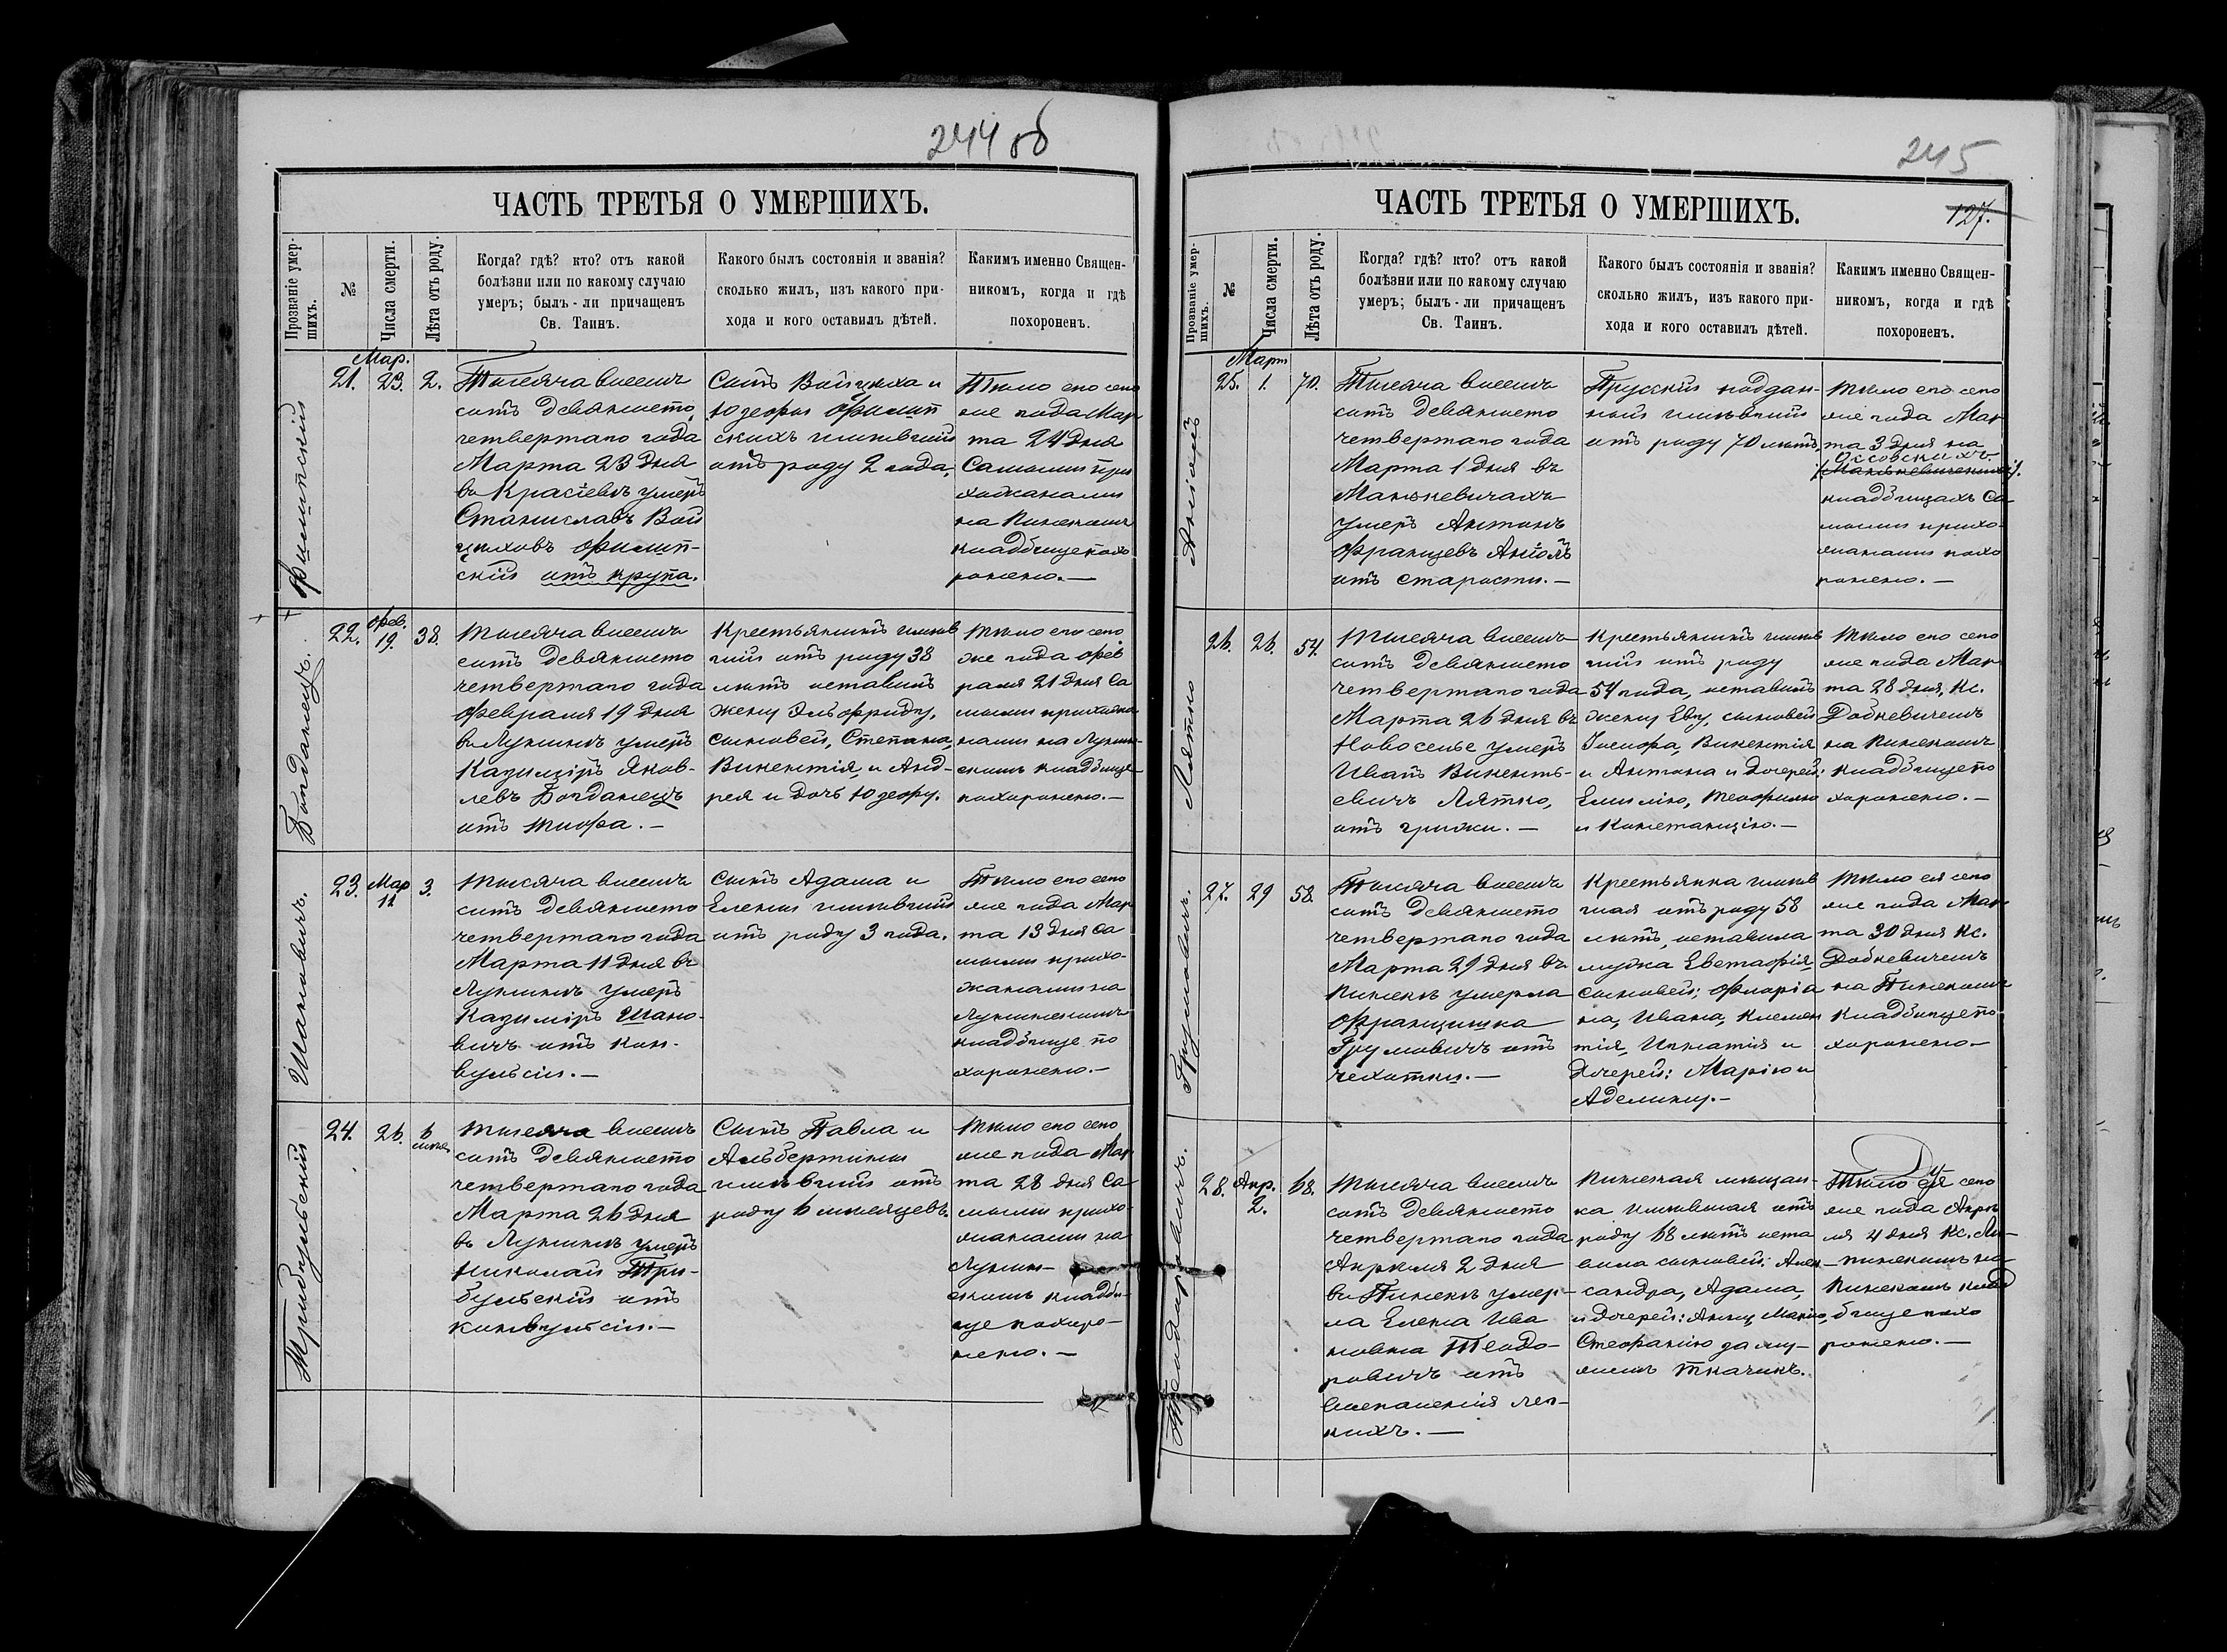 244 об
ЧАСТЬ ТРЕТЬЯ О УМЕРШИХЪ.
Прозваніе умер-
шихъ.
№
Числа смерти.
Лѣта отъ роду.
Когда? гдѣ? кто? отъ какой
болѣзни или по какому случаю
умеръ; былъ-ли причащенъ
Св. Таинъ.
Какого былъ состоянія и званія?
сколько жилъ, изъ какого при-
хода и кого оставилъ дѣтей.
Какимъ именно Священ-
никомъ, когда и гдѣ
похороненъ.
Филипскій
21.
Мар.
23.
2.
Тысяча восемь
сотъ девяносто
четвертаго года
Марта 23 дня
въ Красіевѣ умеръ
Станиславъ Вой
цѣховъ Филип-
скій отъ крупа.
Сынъ Войцѣха и
Юзефы Филип
скихъ жившій
отъ роду 2 года.
Тѣло его сего
же года Мар
та 24 дня
Самыми при
хожанами
на Пинскомъ
кладбище похо
ронено.—
Богданецъ.
22.
Фев.
19.
38.
Тысяча восемь
сотъ девяносто
четвертаго года
Февраля 19 дня
въ Лунинѣ умеръ
Казиміръ Яков-
левъ Богданецъ
отъ тифа.—
Крестьянинъ жив
шій отъ роду 38
лѣтъ оставилъ
жену Эльфриду,
сыновей, Степана,
Викентія, и Анд-
рея и дочь Юзефу.
Тѣло его сего
же года Фев
раля 21 дня Са
мыми прихожа
нами на Лунин-
скимъ кладбище
похоронено.—
Шановичъ.
23.
Мар
11
3.
Тысяча восемь
сотъ девяносто
четвертаго года
Марта 11 дня въ
Лунинѣ умеръ
Казиміръ Шано-
вичъ отъ кон-
вульсіи.—
Сынъ Адама и
Елены жившій
отъ роду 3 года.
Тѣло его сего
же года Мар
та 13 дня са
мыми прихо-
жанами на
Лунинскимъ
кладбище по
хоронено.—
Трибульскій
24.
26.
6
мѣся.
Тысяча восемь
сотъ девяносто
четвертаго года
Марта 26 дня
въ Лунинѣ умеръ
Николай Три-
бульскій отъ
конвульсіи.—
Сынъ Павла и
Альбертины
жившій отъ
роду 6 мѣсяцевъ.
Тѣло его сего
же года Мар
та 28 дня Са
мыми прихо-
жанами на
Лунин-
скимъ кладби-
ще похоро-
нено.—
245
127.
ЧАСТЬ ТРЕТЬЯ О УМЕРШИХЪ.
Прозваніе умер-
шихъ.
№
Числа смерти.
Лѣта отъ роду.
Когда? гдѣ? кто? отъ какой
болѣзни или по какому случаю
умеръ; былъ-ли причащенъ
Св. Таинъ.
Какого былъ состоянія и званія?
сколько жилъ, изъ какого при-
хода и кого оставилъ дѣтей.
Какимъ именно Священ-
никомъ, когда и гдѣ
похороненъ.
25.
Март
1.
70.
Тысяча восемь
сотъ девяносто
четвертаго года
Марта 1 дня въ
Манкевичахъ
умеръ Антонъ
Францевъ
отъ старости.—
Прускій поддан-
ный жившій
отъ роду 70 лѣтъ.
Тѣло его сего
же года Мар
та 3 дня на
Оссовскихъ
кладбищахъ Са
мыми прихо-
жанами похо
ронено.—
Лятко
26.
26.
54.
Тысяча восемь
сотъ девяносто
четвертаго года
Марта 26 дня въ
Новоселье умеръ
Иванъ Викенть-
евичъ Лятко,
отъ грижи.—
Крестьянинъ жив
шій отъ роду
54 года, оставилъ
жену Еву, сыновей
Іосифа, Викентія
и Антона и дочерей:
Емилію, Теофилю
и Констанцію.—
Тѣло его сего
же года Мар
та 28 дня, Кс.
Добкевичемъ
на Пинскомъ
кладбище по
хоронено.—
Грумовичъ.
27.
29
58.
Тысяча восемь
сотъ девяносто
четвертаго года
Марта 29 дня въ
Пинскѣ умерла
Францишка
Грумовичъ отъ
чехотки.—
Крестьянка жив
шая отъ роду 58
лѣтъ, оставила
мужа Евстафія,
сыновей: Флоріа
на, Ивана, Клемен
тія, Игнатія и
дочерей: Марію и
Аделину.—
Тѣло ея сего
же года Мар
та 30 дня Кс.
Добкевичемъ
на Пинскомъ
кладбище по
хоронено.—
Теодоровичъ.
28.
Апр.
2.
68.
Тысяча восемь
сотъ девяносто
четвертаго года
Апрѣля 2 дня
въ Пинскѣ умер-
ла Елена Ива
новна Теодо-
ровичъ отъ
воспаленія лег-
кихъ.—
Пинская мѣщан-
ка жившая отъ
роду 68 лѣтъ оста
вила сыновей: Алек-
сандра, Адама,
и дочерей: Анну, Марію,
Стефанію за му-
жемъ Ткачикъ.
Тѣло ея сего
же года Апрѣ
ля 4 дня Кс.
на
Пинскомъ клад
бище похо
ронено.—